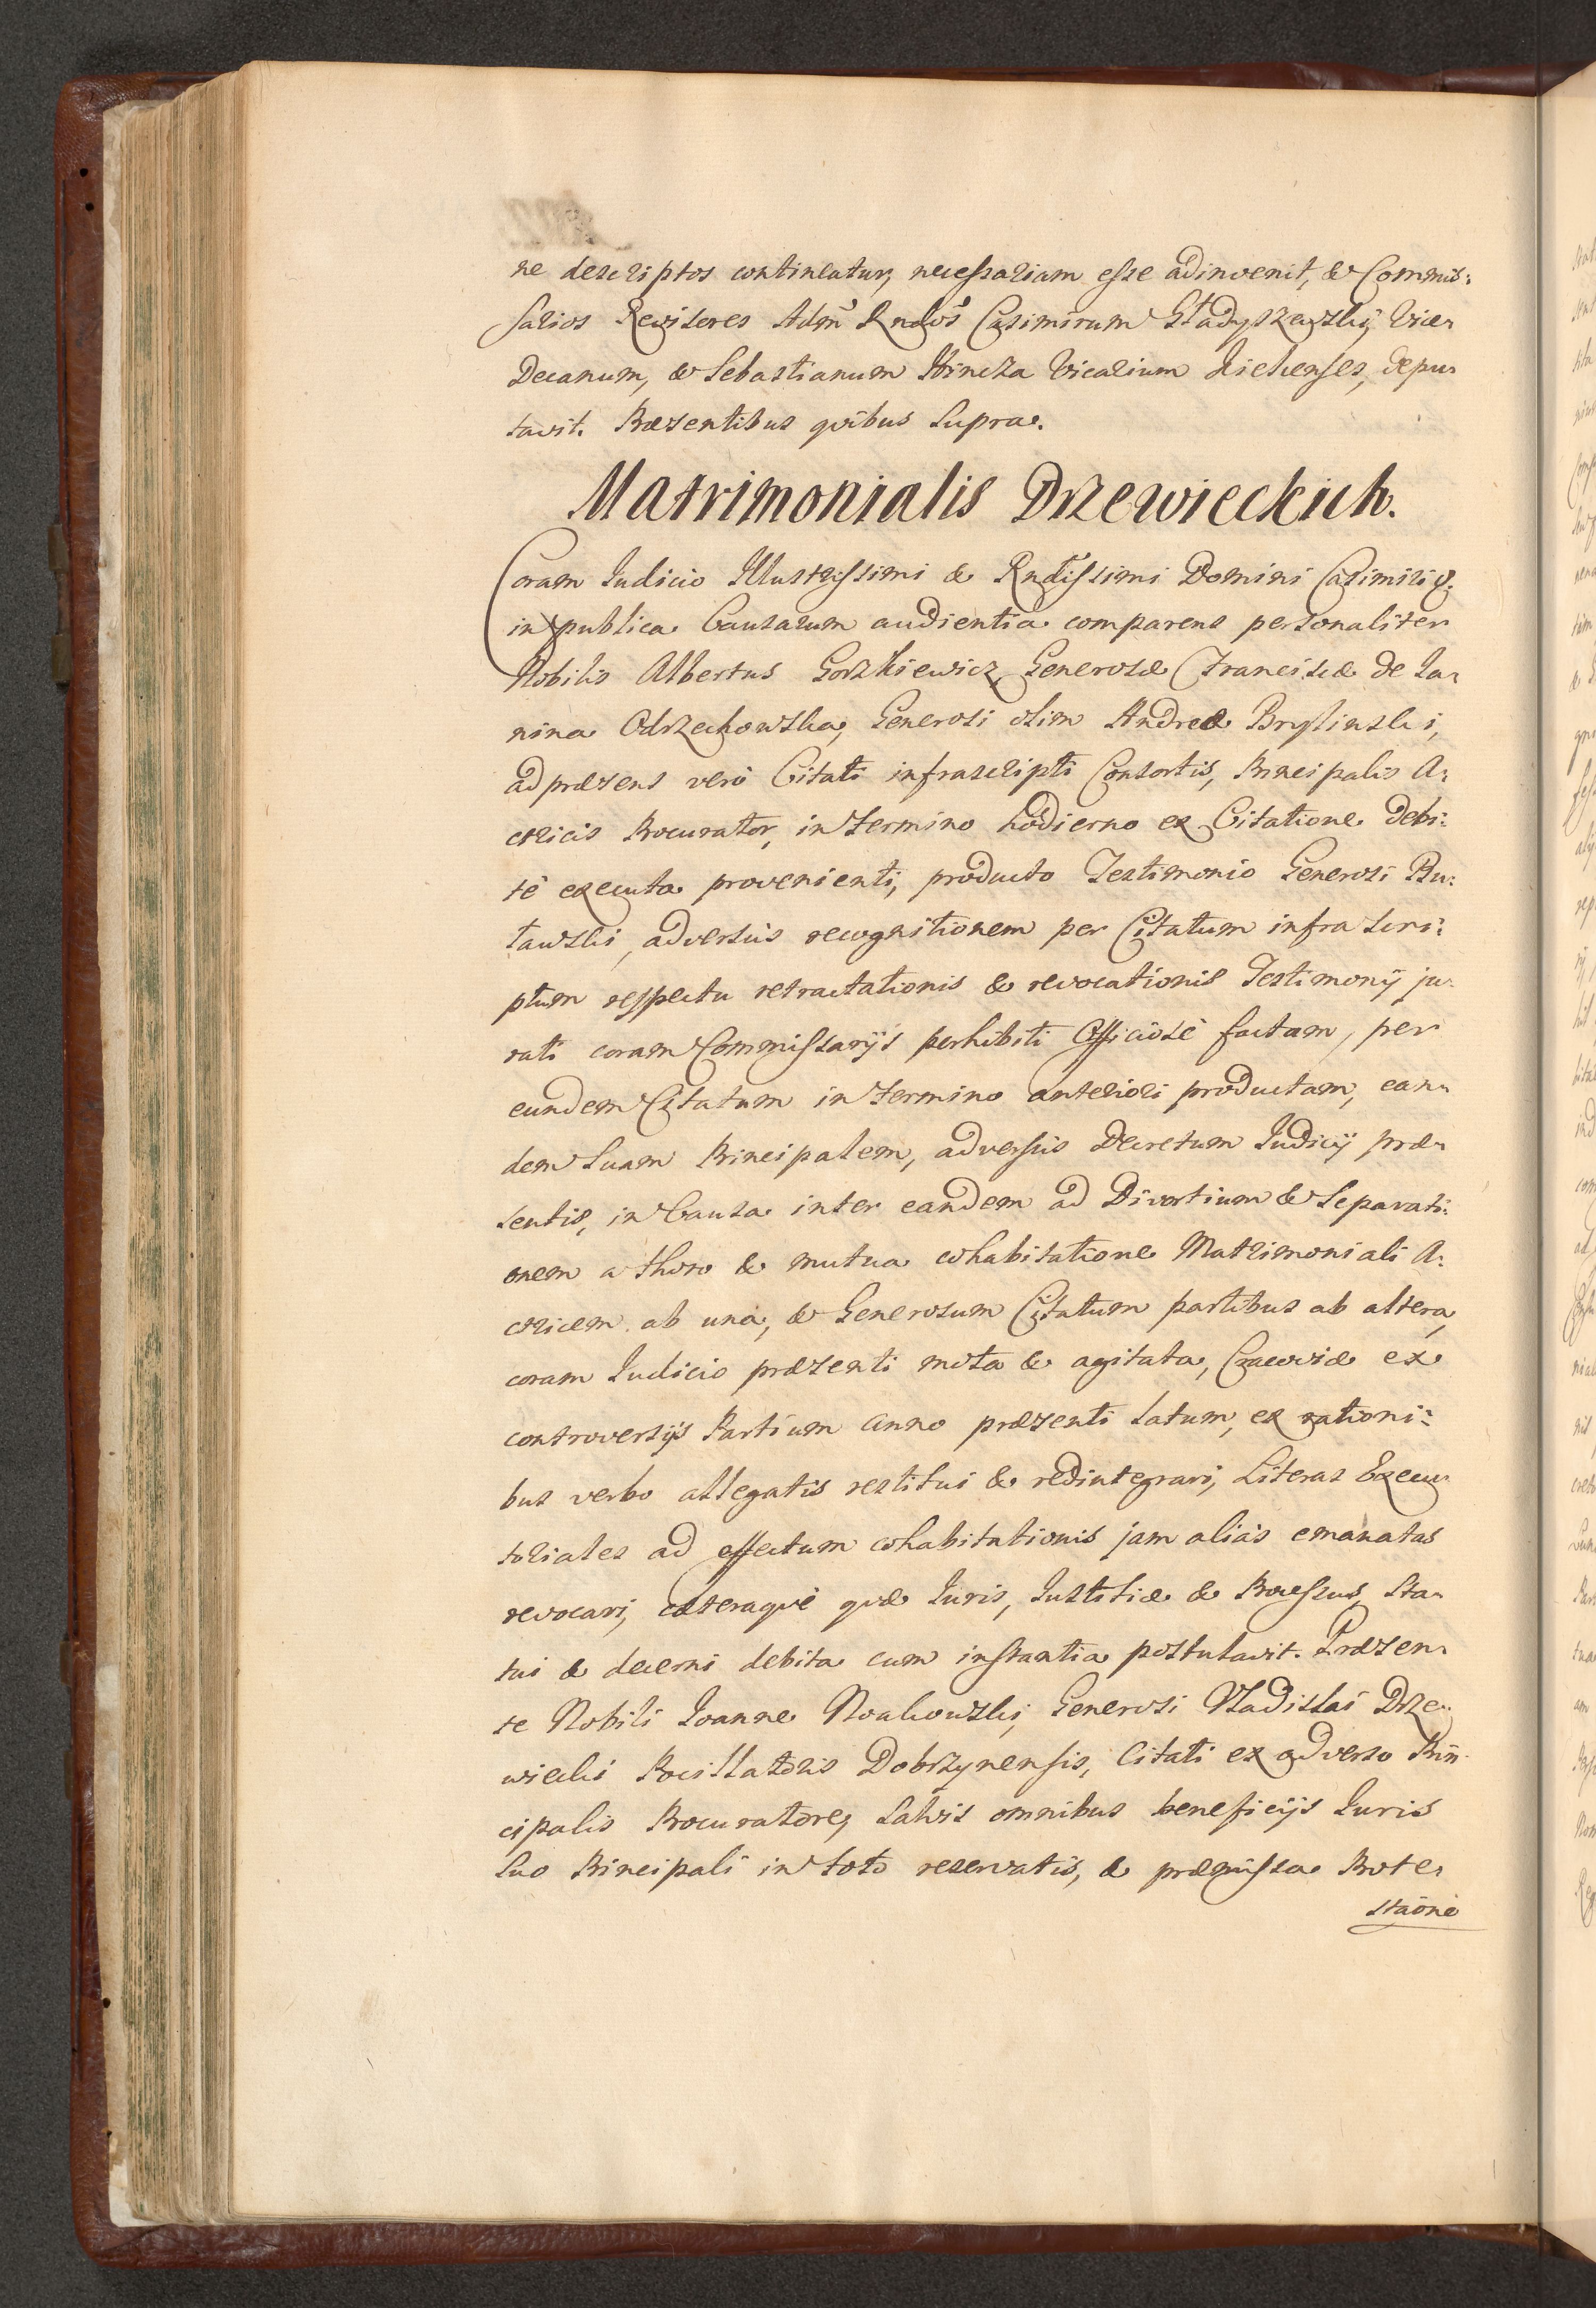 ne descriptos contineatur, necessariam esse adinvenit, & Commis:
sarios Revisores Adm Rndos Casimirum Gładyszewski, Vice-
Decanum, & Sebastianum Hincza Vicarium Kielcenses, depu-
tavit. Præsentibus quibus supra.
Matrimonialis Drzewieckich.
Coram Iudicio Illustrissimi & Rndissimi Domini Casimiri &.
in publica Causarum audientia comparens personaliter
Nobilis Albertus Gorzkiewicz, Generosæ Franciscæ de Ia-
nina Odrzechowska, Generosi olim Andreæ Brylinski,
ad præsens verò Citati infrascripti Consortis, Principalis A-
ctricis Procurator, in termino hodierno ex Citatione debi:
tè executa provenienti, producto Testimonio Generosi Ru-
tawski, adversùs recognitionem per Citatum infra scri:
ptum respectu retractationis & revocationis Testimonij ju-
rati coram Commissarijs perhibiti Officiosè factam, per
eundem Citatum in termino anteriori productam, ean-
dem suam Principalem, adversùs Decretum Iudicij præ-
sentis, in Causa inter eandem ad Divortium & Separati:
onem a thoro & mutua cohabitatione Matrimoniali A:
ctricem ab una, & Generosum Citatum partibus ab altera,
coram Iudicio præsenti mota & agitata, Cracoviæ ex
controversijs Partium Anno præsenti latum, ex rationi:
bus verbo allegatis restitui & redintegrari, Literas Execu-
toriales ad effectum cohabitationis jam aliàs emanatas
revocari, cæteraque quæ Iuris, Iustitiæ & Processus, sta-
tui & decerni debita cum instantia postulavit. Præsen-
te Nobili Ioanne Noakowski, Generosi Vladislai Drze-
wiecki Pocillatoris Dobrzynensis, Citati ex adverso Prin-
cipalis Procuratore, salvis omnibus beneficijs Iuris
suo Principali in toto reservatis, & præmissa Prote-
staōne